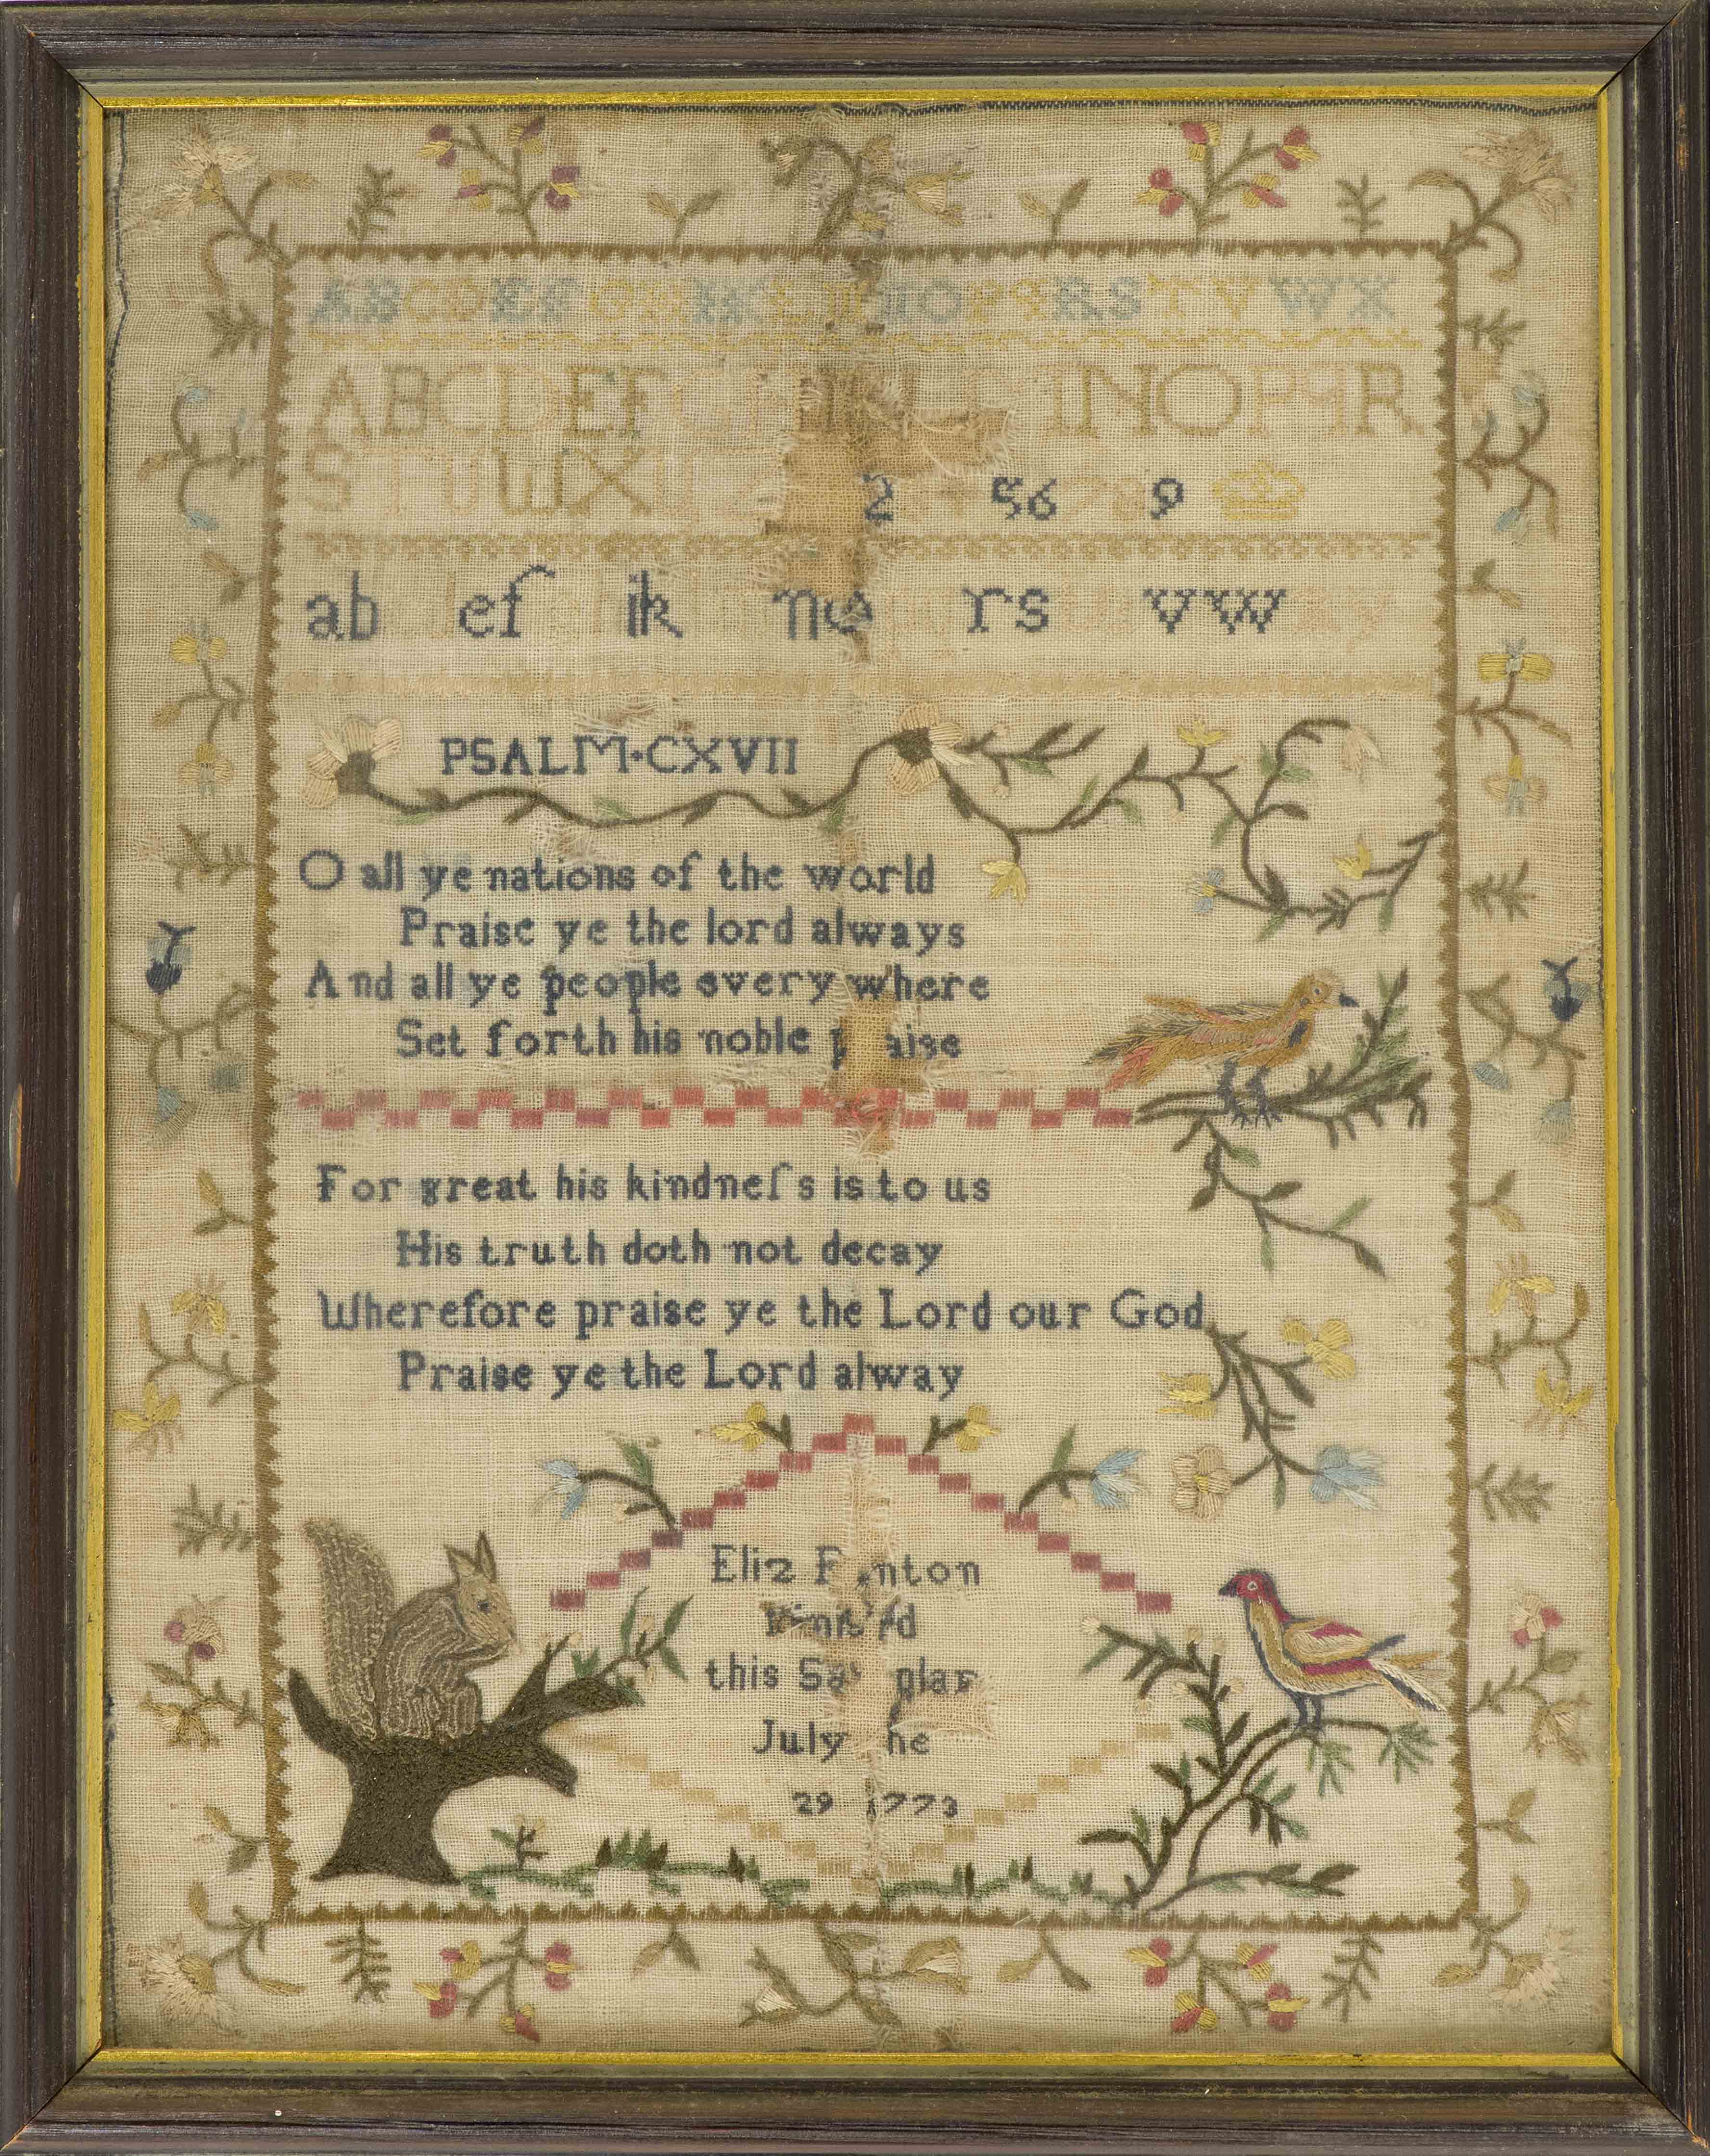 ABCDEFGHIKLMNOPQRSTVWX
ABCDEFGHIKLMNOPQR
STUWX 2 56 9
ab ef ik no rs vw
PSALM·CXVII
O all ye nations of the world
Praise ye the lord always
And all ye people every where
Set forth his noble praise
For great his kindneſs is to us
His truth doth not decay
Wherefore praise ye the Lord our God
Praise ye the Lord alway
Eliz
this
July the
29 1773